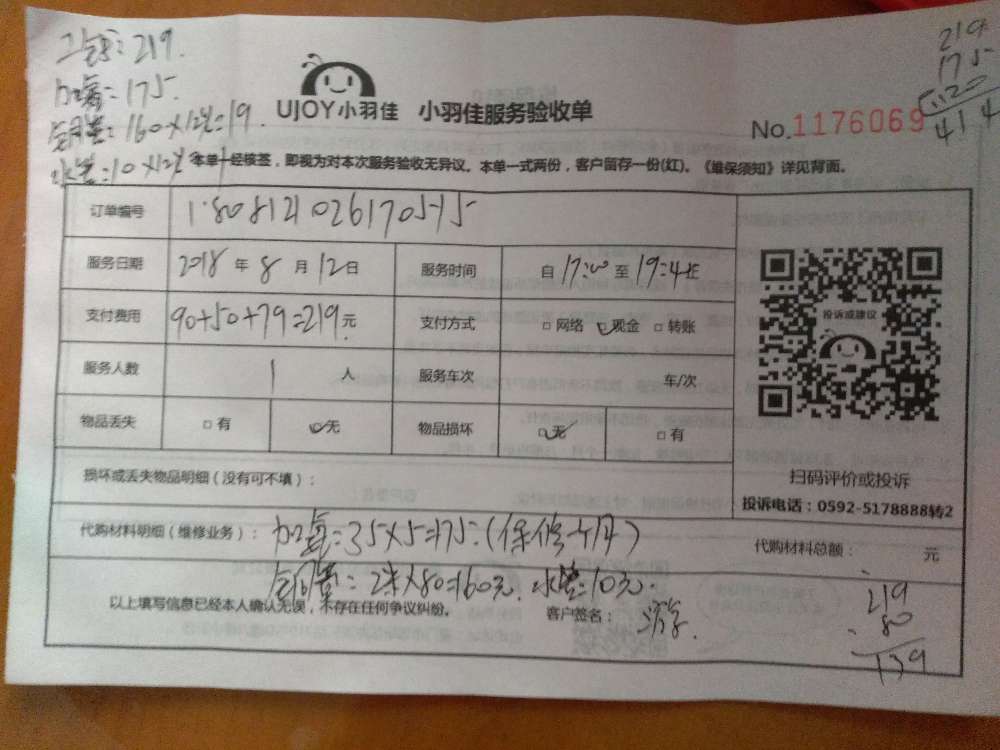 工钱:219.
加氟=175.
铜管=160×12%=19.
水管=10×12%=1
219
175
20
414
UJOY小羽佳 小羽佳服务验收单
No.1176069
本单一经核签，即视为对本次服务验收无异议。本单一式两份，客户留存一份(红)。《维保须知》详见背面。
订单编号 1808121026170575
服务日期 2018年8月12日 服务时间 自17:00至19:45
支付费用 90+50+79=219元 支付方式 □网络 □现金 □转账
服务人数 1人 服务车次 车/次
物品丢失 □有 □无 物品损坏 □无 □有
损坏或丢失物品明细（没有可不填）：
投诉或建议
扫码评价或投诉
投诉电话：0592-5178888转2
代购材料明细（维修业务）： 加氟=35×5=175=(保修个月) 代购材料总额： 元
铜管=2米×80=160元.水管=10元.
以上填写信息已经本人确认无误，不存在任何争议纠纷。 客户签名：
219
80
139